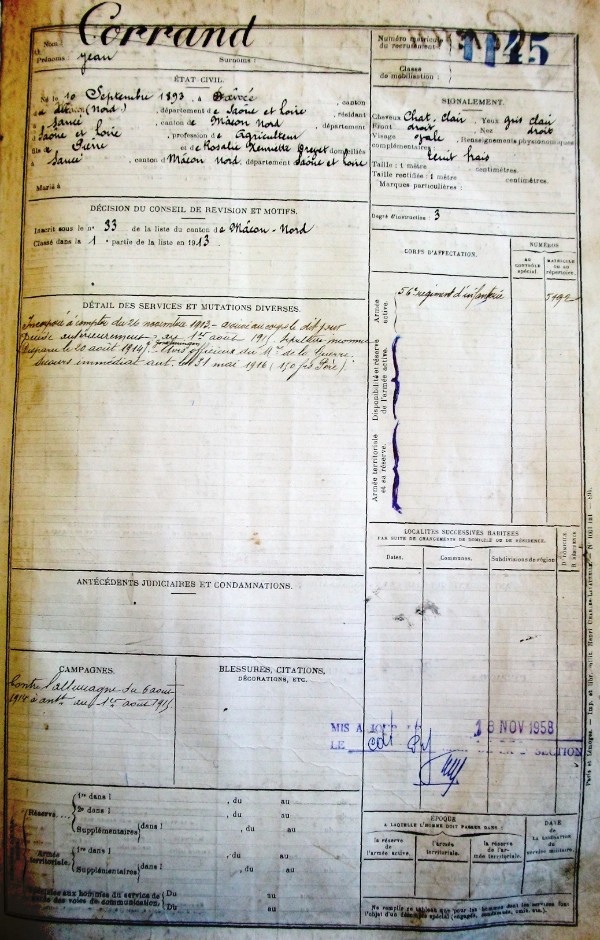 Nom : Corrand
Prénoms : Jean Surnoms :
Numéro matricule du recrutement : 1145
Classe de mobilisation :
ÉTAT CIVIL.
Né le 10 Septembre 1893, à , canton
de dit (Nord), département de Saône et Loire, résidant
à Sancé, canton de Mâcon Nord, département
de Saône et Loire, profession de Agriculteur
fils de Pierre et de Rosalie domiciliés
à Sancé, canton d Mâcon Nord, département Saône et Loire
Marié à
SIGNALEMENT.
Cheveux Chat. clair, Yeux gris clair
Front droit Nez droit
Visage ovale, Renseignements physionomiques
complémentaires : teint frais
Taille : 1 mètre centimètres.
Taille rectifiée : 1 mètre centimètres.
Marques particulières :
Degré d'instruction : 3
DÉCISION DU CONSEIL DE RÉVISION ET MOTIFS.
Inscrit sous le n° 33 de la liste du canton de Mâcon-Nord
Classé dans la 1e partie de la liste en 1913.
CORPS D'AFFECTATION.
NUMÉROS
AU CONTRÔLE SPÉCIAL.
MATRICULE OU AU RÉPERTOIRE.
Armée active.
56e régiment d'infanterie
Disponibilité et réserve de l'armée active.
Armée territoriale et sa réserve.
DÉTAIL DES SERVICES ET MUTATIONS DIVERSES.
Incorporé à compter du 26 novembre 1913 - arrivé au corps le dit jour
antérieurement au 1er août 1915
disparu le 20 août 1914 Avis officieux du Mre de la Guerre.
Secours immédiat aut. le 31 mai 1916 (150 frs Père).
LOCALITÉS SUCCESSIVES HABITÉES
PAR SUITE DE CHANGEMENTS DE DOMICILE OU DE RÉSIDENCE.
Dates. Communes. Subdivisions de région
D. domicile R. résidence
ANTÉCÉDENTS JUDICIAIRES ET CONDAMNATIONS.
CAMPAGNES.
Contre l'allemagne du 6 août
1914 à antr au 1er août 1915
BLESSURES, CITATIONS, DÉCORATIONS, ETC.
MIS A JOUR
LE
18 NOV 1958
SECTION
Réserve....
1re dans l , du au
2e dans l , du au
Supplémentaires (dans l , du au
Armée territoriale.
1re dans l , du au
Supplémentaires (dans l , du au
aux hommes du service de Du au
garde des voies de communication. Du au
ÉPOQUE
A LAQUELLE L'HOMME DOIT PASSER DANS :
la réserve de l'armée active.
l'armée territoriale.
la réserve de l'armée territoriale.
DATE DE LA LIBÉRATION DU service militaire.
Ne remplir ce tableau que pour les hommes dont les services font
l'objet d'un décompte spécial (engagés, condamnés, omis, etc.).